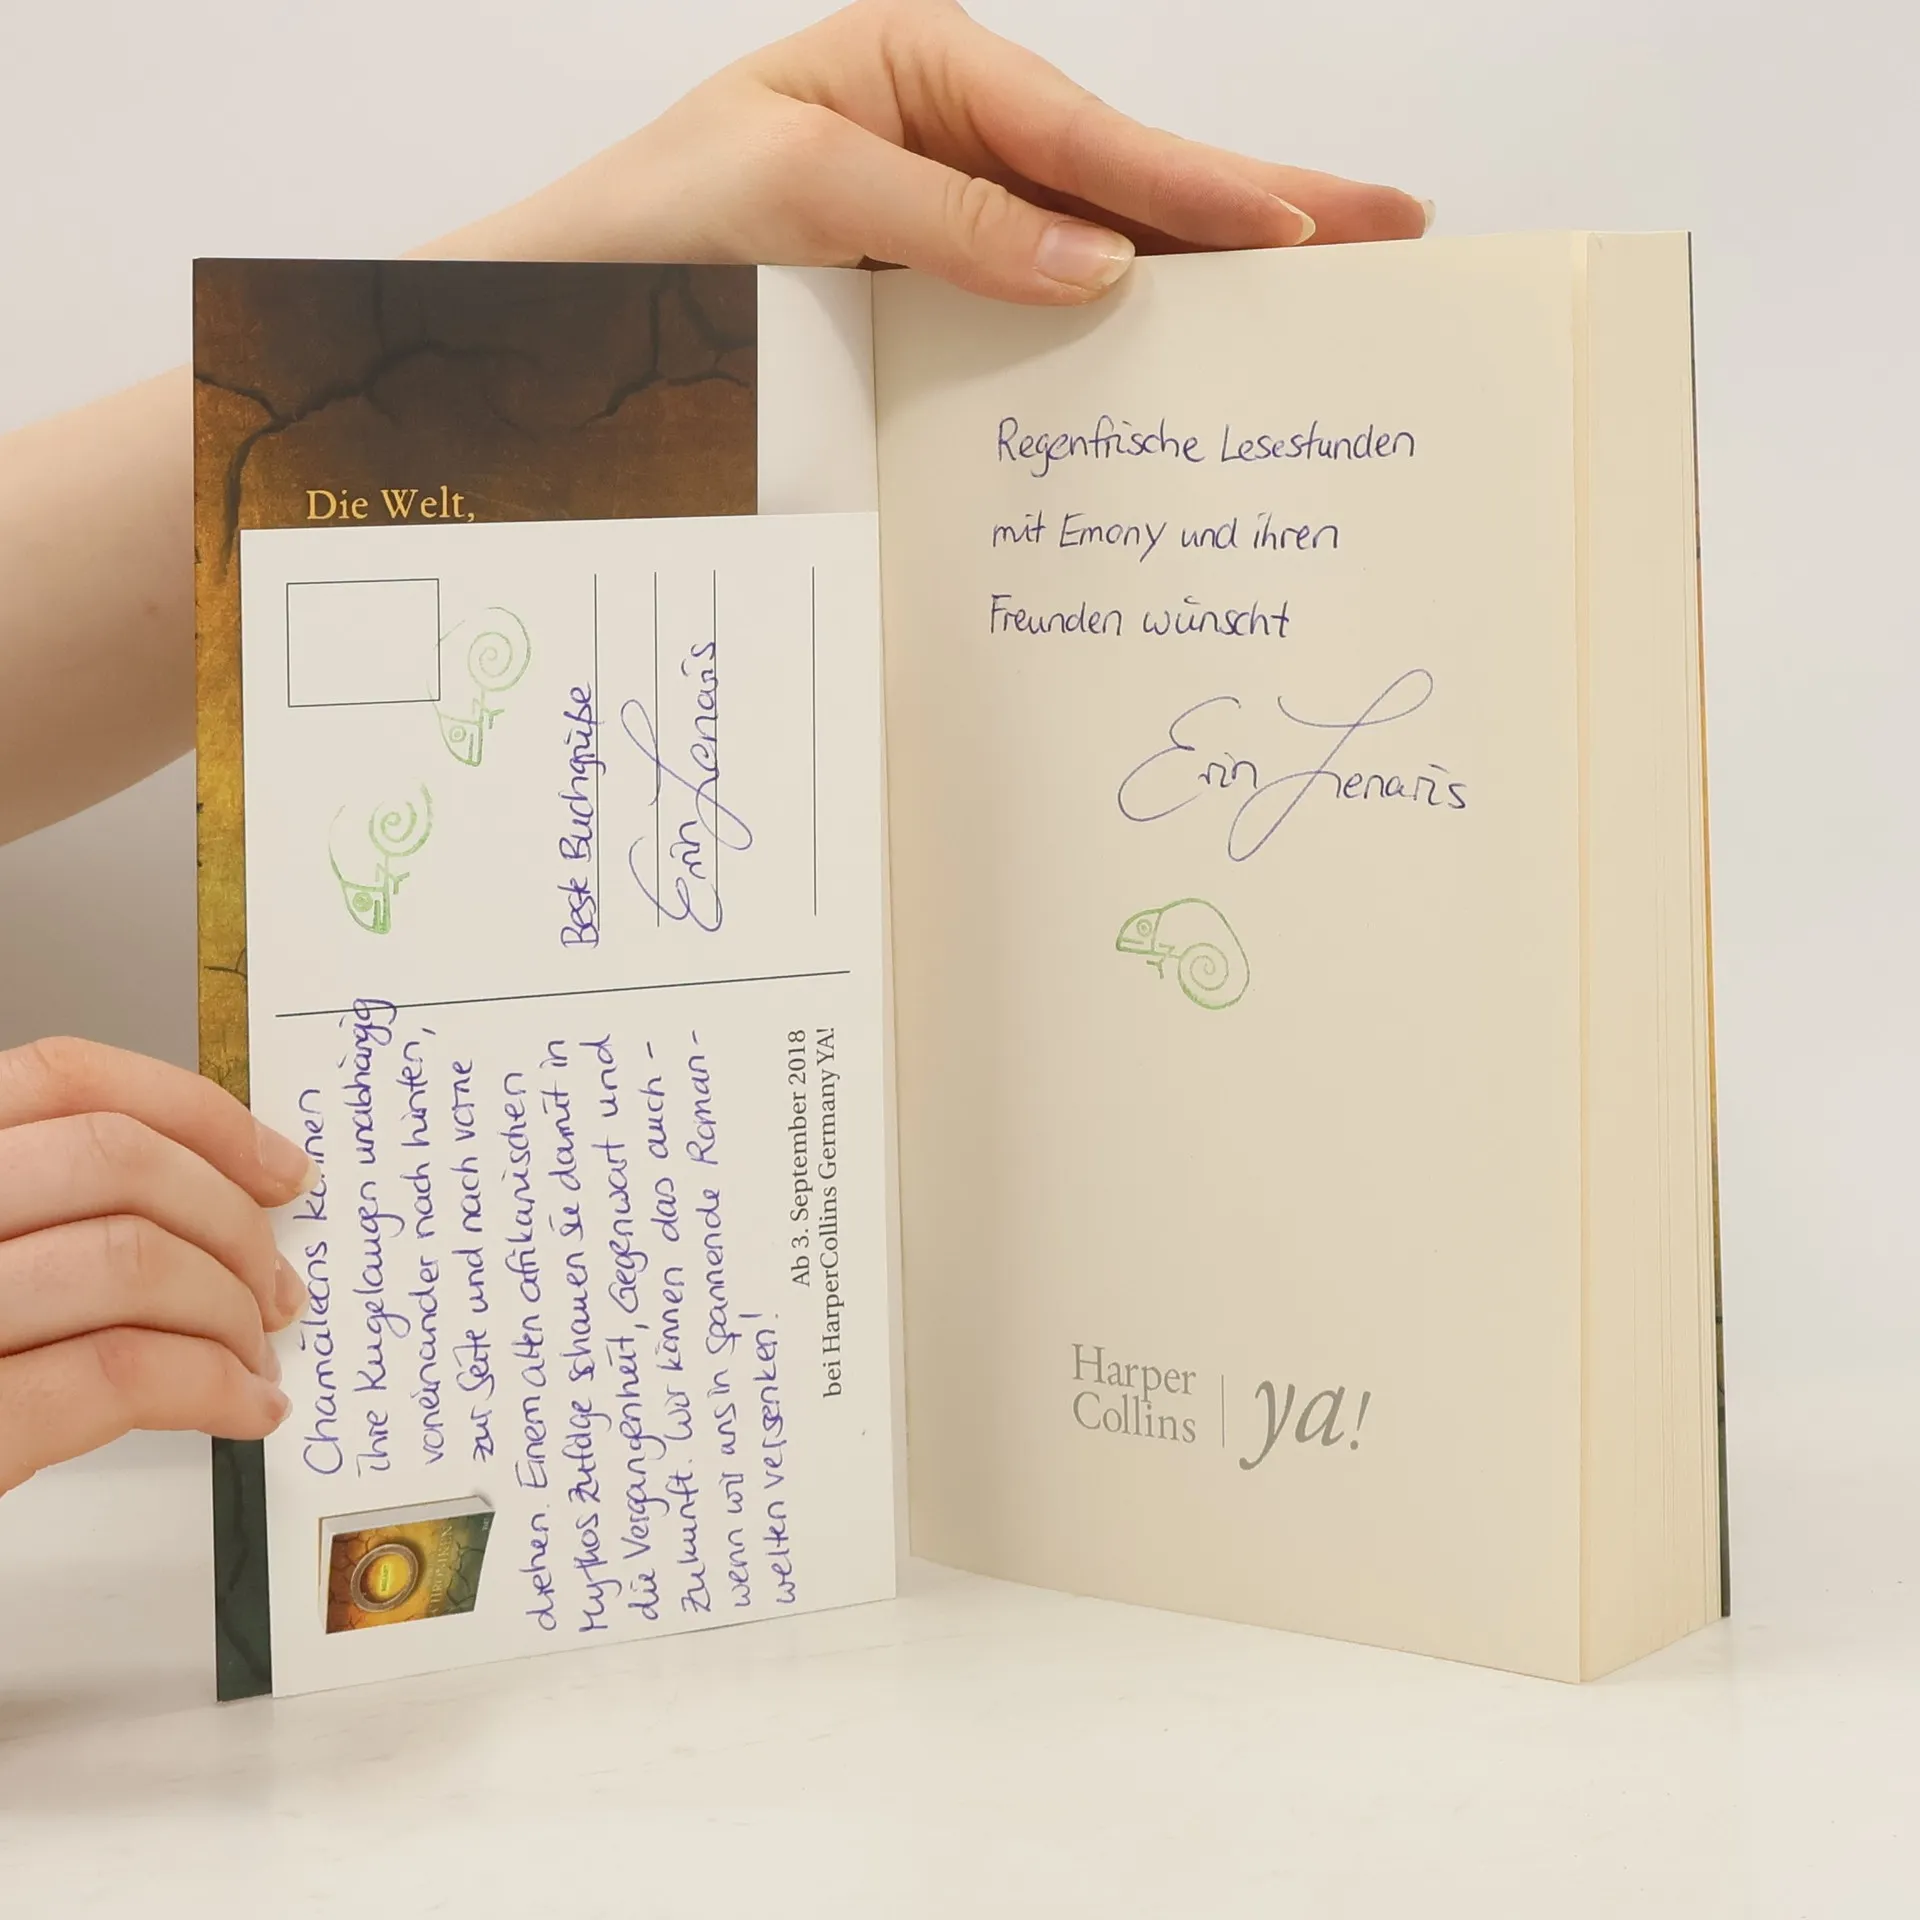 Die Welt,
Beste Buchgrüße
Erin Lenaris
Chamäleons
ihre Kugelaugen unabhängig
voneinander nach hinten,
zur Seite und nach vorne
drehen. Einem alten afrikanischen
Mythos zufolge schauen sie damit in
die Vergangenheit, Gegenwart und
Zukunft. Wir können das auch -
wenn wir uns in spannende Roman-
welten versenken!
Ab 3. September 2018
bei HarperCollins Germany YA!
Regenfrische Lesestunden
mit Emony und ihren
Freunden wünscht
Erin Lenaris
Harper
Collins
ya!